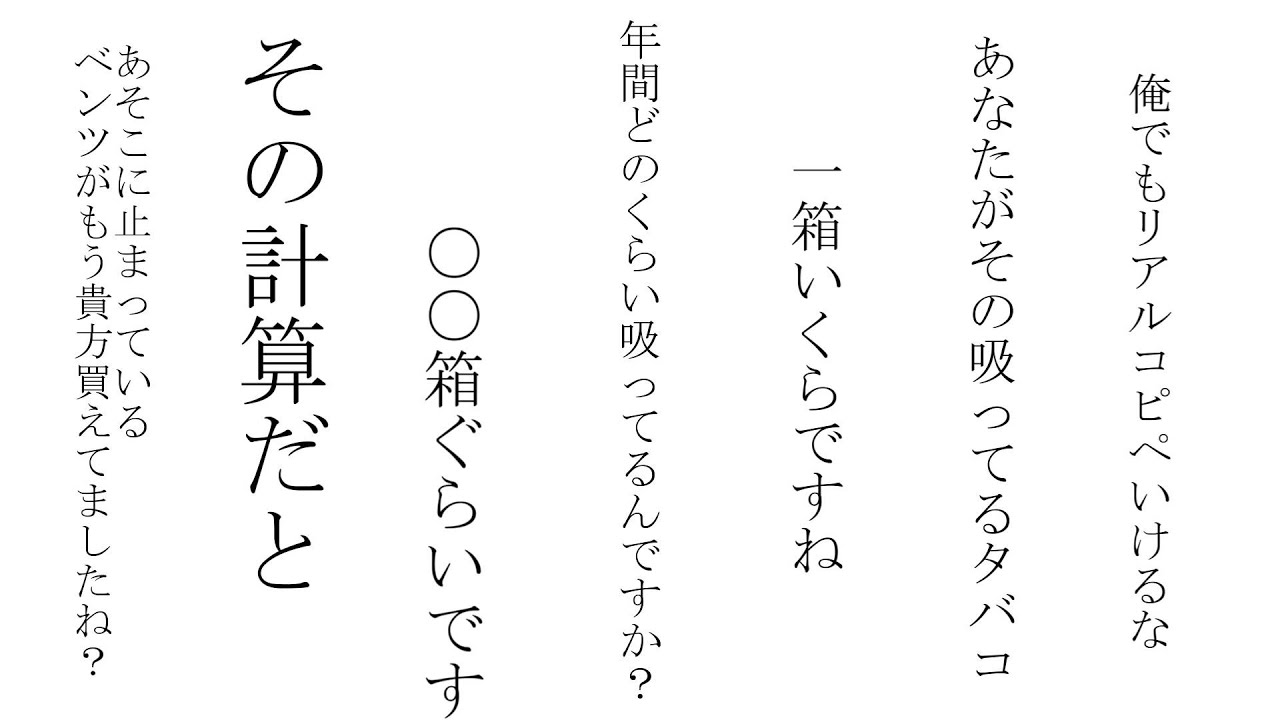 俺でもリアルコピペいけるな
あなたがその吸ってるタバコ
一箱いくらですね
年間どのくらい吸ってるんですか？
〇〇箱ぐらいです
その計算だと
あそこに止まっている
ベンツがもう貴方買えてましたね？